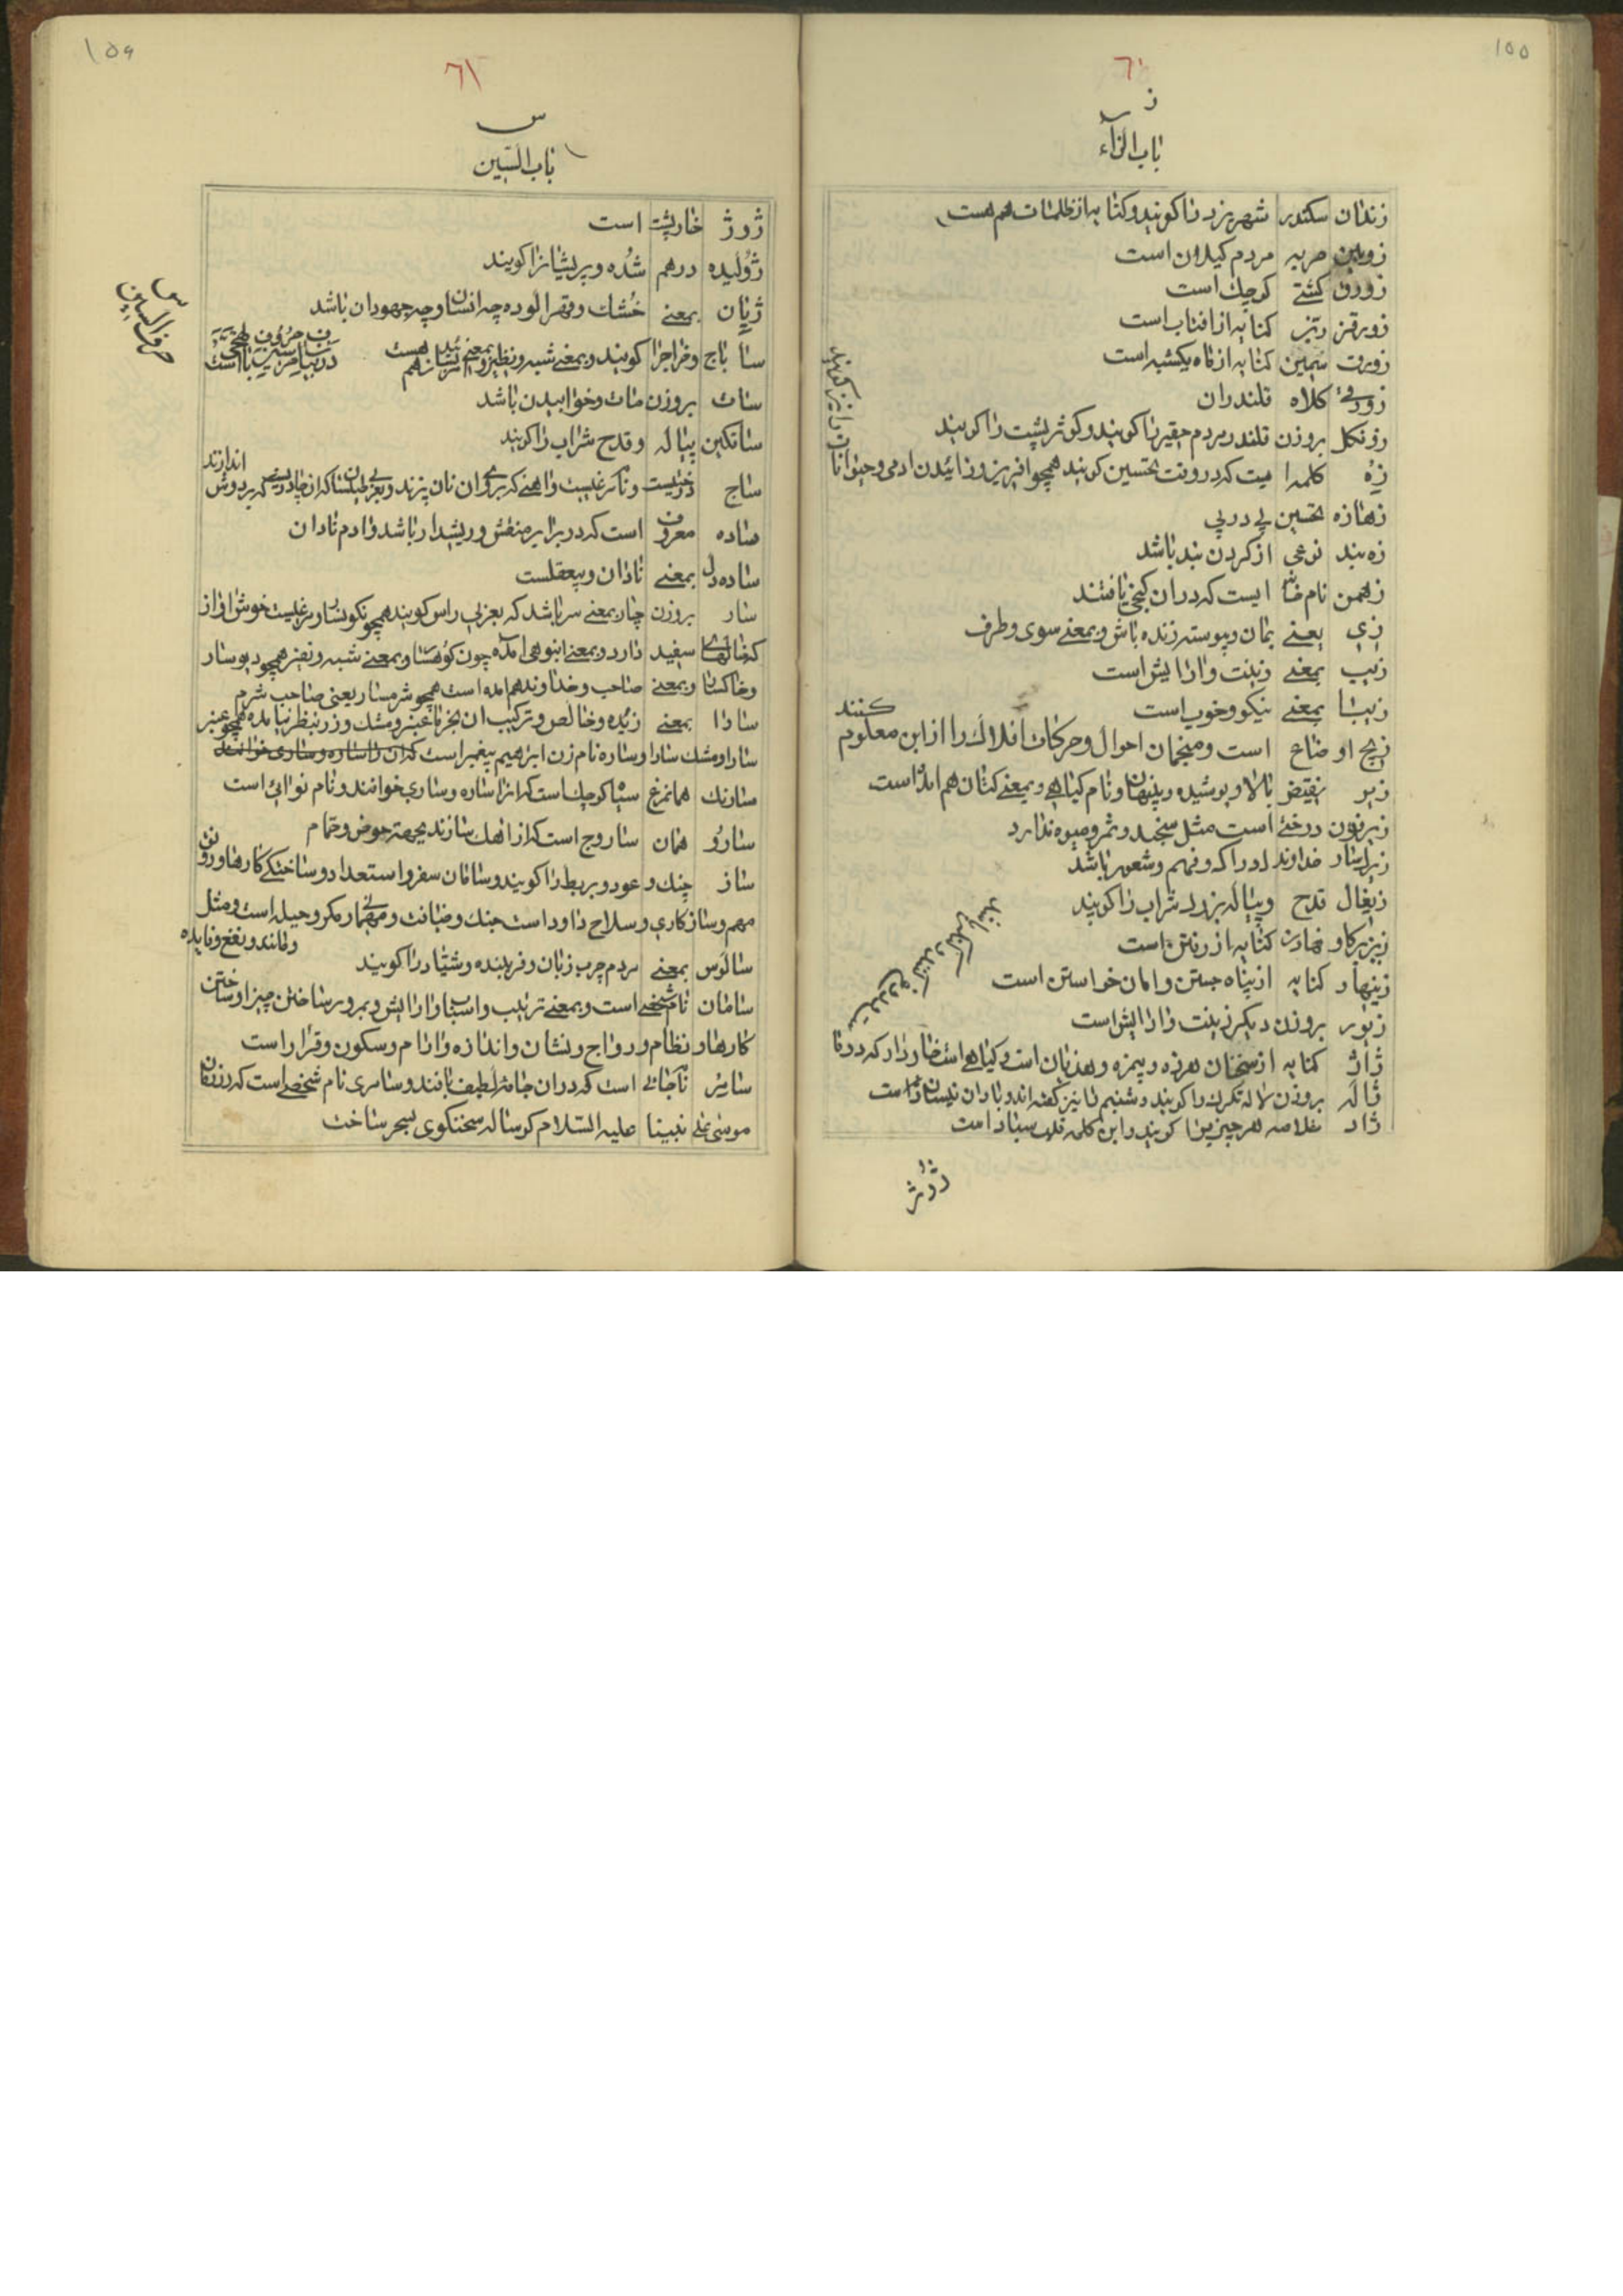 ۱۵۵
٦٠
ز
باب الزاء
زندان سکندر شهر یزد را کویند و کنایه از ظلمات هم هست
زوبین حربه مردم کیلان است
زورق کشتی کوچک است
زورق زرین کنایه از افتاب است
زورق سیمین کنایه از ماه یکشبه است
زورقی کلاه قلندران
زونکل بروزن قلندر مردم حقیر را کویند و کوژپشت را کویند
زه کلمه ایست که در وقت تحسین کویند همچو افرین و زائیدن ادمی و حیوانات را نیز کویند
زهازه تحسین پی در پی
زه بند نوعی از کردن بند باشد
زهمن نام خانه ایست که در ان کنجی یافتند
زی یعنی بمان و پیوسته زنده باش و بمعنی سوی و طرف
زیب بمعنی زینت و ارایش است
زیبا بمعنی نیکو و خوب است
زیج اوضاع است و منجمان احوال و حرکات افلاک را از این معلوم کنند
زیر نقیض بالا و پوشیده و پنهان و نام کیاهی و بمعنی کتان هم امده است
زیرفون درختی است مثل سنجد و ثمر و میوه ندارد
زیرکسار خداوند ادراک و فهم و شعور باشد
زیغال قدح و پیاله بزرک شراب را کویند
زیر رکاب نهادن کنایه از رفتن است
زینهار کنایه از پناه جستن و امان خواستن است
زیور بروزن دیکر زینت و ارایش است
ژاژ کنایه از سخنان هرزه و بیمزه و هذیان است و کیاهی است خاردار که در
ژاله بروزن لاله تکرک را کویند و شبنم را نیز کفته اند و باران
ژاد خلاصه هر چیز را کویند و این کلمه
ژوژ
۱۵۶
٦١
س
باب السین
ژوژ خارپشت است
ژولیده درهم شده و پریشان را کویند
ژیان بمعنی خشک و قهر الوده چه انسان و چه حیوان باشد
س
حرف السین
سا باج و خراج را کویند و بمعنی شبه و نظیر
سات بروزن مات و خوابیدن باشد
ساتکین پیاله و قدح شراب را کویند
ساج درختیست و نام مرغیست و اهنی که بر روی ان نان پزند
ساده معروف است که در برابر منقش و ریشدار باشد و ادم نادان
ساده دل بمعنی نادان و بیعقلست
سار بروزن چار بمعنی سر باشد که بعربی راس کویند همچو نکونسار و مرغیست خوش اواز
که خالهای سفید دارد و بمعنی انبوهی امده چون کوهسار و بمعنی شبه و نظیر همچو دیوسار
و خاکسار و بمعنی صاحب و خداوند هم امده است همچو شرمسار یعنی صاحب شرم
سارا بمعنی زبده و خالص و ترکیب ان بجز با عنبر و مشک و زر بنظر نیامده همچو عنبر
سارا و مشک سارا و ساره نام زن ابراهیم پیغمبر است که ان را ساره و ساری خوانند
سارنک همان مرغ سیاه کوچک است که انرا ساره و ساری خوانند و نام نوائی است
سارو همان ساروج است که از اهک سازند بجهته حوض و حمام
ساز چنک و عود و بربط را کویند و سامان سفر و استعداد و ساختکی کارها و رونق
مهم و ساز کاری و سلاح و ادوات جنک و ضیافت و مهمانی و مکر و حیله است و مثل
و مانند و نفع و فایده
سالوس بمعنی مردم چرب زبان و فریبنده و شیاد را کویند
سامان نام شخصی است و بمعنی ترتیب و اسباب و ارایش و بمرور ساختن چیزها و ساختن
کارها و نظام و رواج و نشان و اندازه و ارام و سکون و قرار است
سامر نام جائی است که در ان جامه لطیف بافند و سامری نام شخصی است که در زمان
موسی علی نبینا علیه السلام کوساله سخنکوی بسحر ساخت